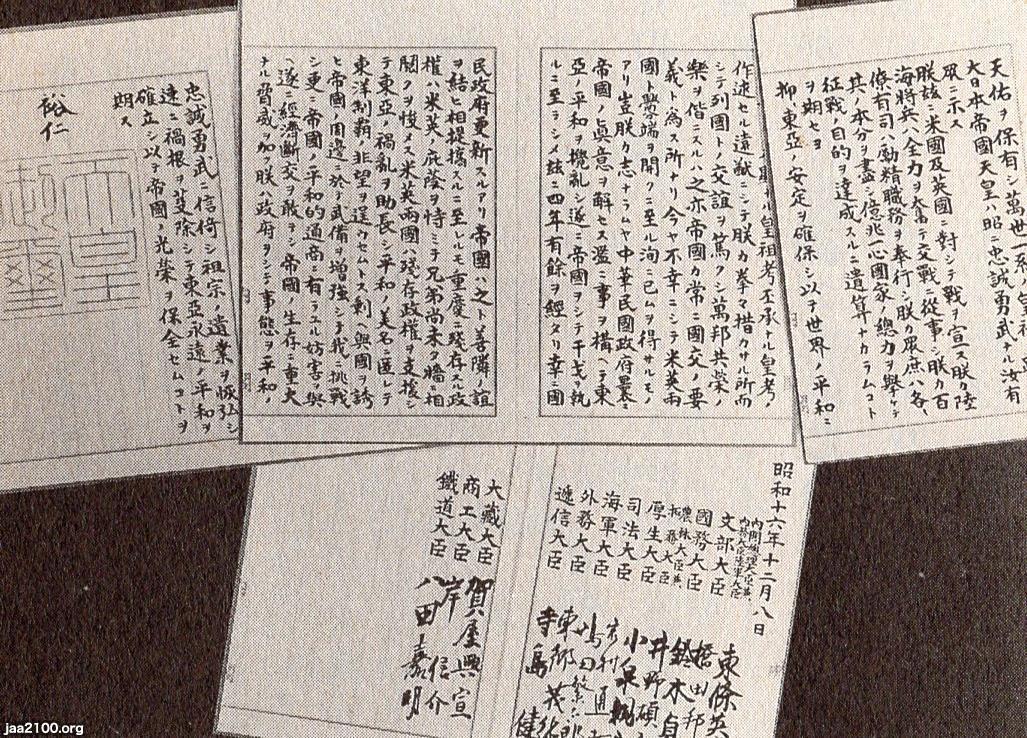 天佑ヲ保有シ萬世一系ノ皇
大日本帝國天皇ハ昭ニ忠誠勇武ナル汝有
眾ニ示ス
朕玆ニ米國及英國ニ對シテ戰ヲ宣ス朕カ陸
海將兵ハ全力ヲ奮テ交戰ニ從事シ朕カ百
僚有司ハ勵精職務ヲ奉行シ朕カ眾庶ハ各〻
其ノ本分ヲ盡シ億兆一心國家ノ總力ヲ擧ケテ
征戰ノ目的ヲ達成スルニ遺算ナカラムコト
ヲ期セヨ
抑〻東亞ノ安定ヲ確保シ以テ世界ノ平和ニ
ナル皇祖考丕承ナル皇考ノ
作述セル遠猷ニシテ朕カ拳々措カサル所而
シテ列國トノ交誼ヲ篤クシ萬邦共榮ノ
樂ヲ偕ニスルハ之亦帝國カ常ニ國交ノ要
義ト為ス所ナリ今ヤ不幸ニシテ米英兩
國ト釁端ヲ開クニ至ル洵ニ已ムヲ得サルモノ
アリ豈朕カ志ナラムヤ中華民國政府曩ニ
帝國ノ眞意ヲ解セス濫ニ事ヲ構ヘテ東
亞ノ平和ヲ攪亂シ遂ニ帝國ヲシテ干戈ヲ執
ルニ至ラシメ玆ニ四年有餘ヲ經タリ幸ニ國
民政府更新スルアリ帝國ハ之ト善隣ノ誼
ヲ結ヒ相提攜スルニ至レルモ重慶ニ殘存スル政
權ハ米英ノ庇蔭ヲ恃ミテ兄弟尚未タ牆ニ相
鬩クヲ悛メス米英兩國ハ殘存政權ヲ支援シ
テ東亞ノ禍亂ヲ助長シ平和ノ美名ニ匿レテ
東洋制覇ノ非望ヲ逞ウセムトス剩ヘ與國ヲ誘
ヒ帝國ノ周邊ニ於テ武備ヲ增強シテ我ニ挑戰
シ更ニ帝國ノ平和的通商ニ有ラユル妨害ヲ與
ヘ遂ニ經濟斷交ヲ敢テシ帝國ノ生存ニ重大
ナル脅威ヲ加フ朕ハ政府ヲシテ事態ヲ平和ノ
忠誠勇武ニ信倚シ祖宗ノ遺業ヲ恢弘シ
速ニ禍根ヲ芟除シテ東亞永遠ノ平和ヲ
確立シ以テ帝國ノ光榮ヲ保全セムコトヲ
期ス
裕仁
天皇
御璽
昭和十六年十二月八日
內閣總理大臣兼
內務大臣陸軍大臣
東條英
文部大臣 橋田邦
國務大臣 鈴木貞
農林大臣兼
拓務大臣 井野碩
厚生大臣 小泉親
司法大臣 岩村通
海軍大臣 嶋田繁太郎
外務大臣 東郷茂德
遞信大臣 寺島健
大藏大臣 賀屋興宣
商工大臣 岸信介
鐵道大臣 八田嘉明
jaa2100.org